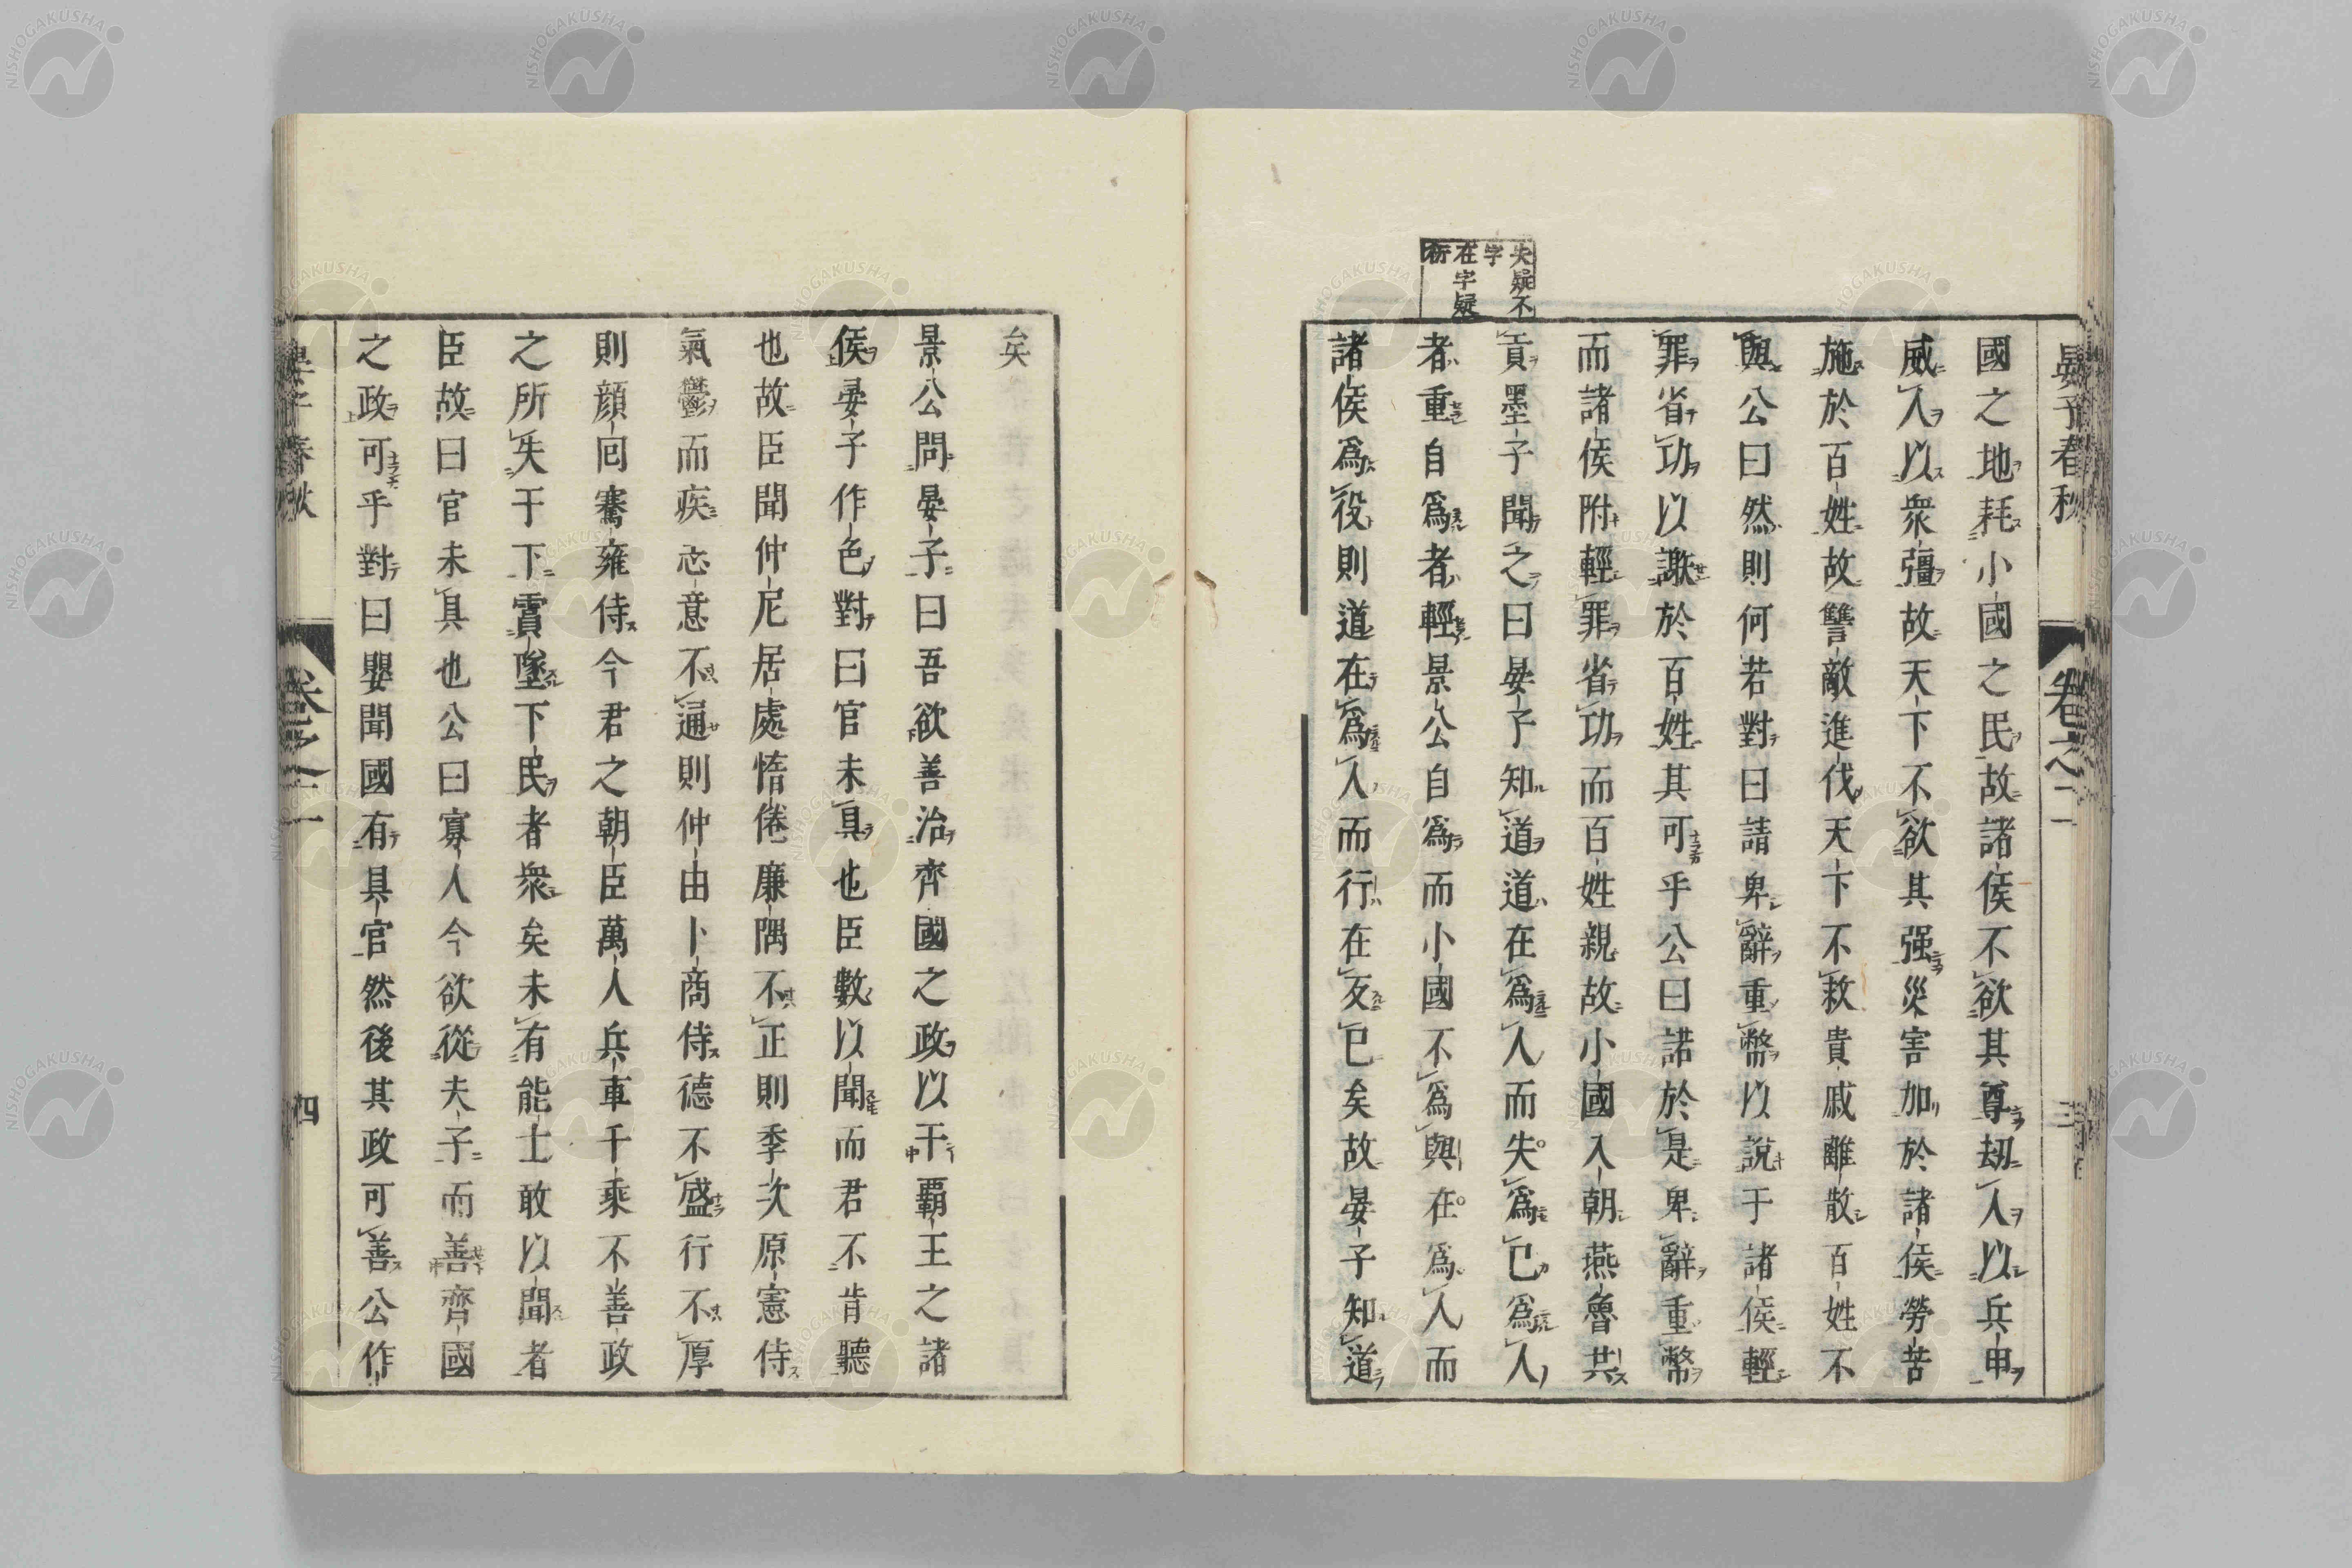 晏子春秋 卷之二 三
國之地耗小國之民故諸侯不欲其尊劫人以兵甲
威人以衆彊故天下不欲其强災害加於諸侯勞苦
施於百姓故讐敵進伐天下不救貴戚離散百姓不
與公曰然則何若對曰請卑辭重幣以說于諸侯輕
罪省功以謝於百姓其可乎公曰諾於是卑辭重幣
而諸侯附輕罪省功而百姓親故小國入朝燕魯共
貢墨子聞之曰晏子知道道在爲人而失爲己爲人
者重自爲者輕景公自爲而小國不爲與在爲人而
諸侯爲役則道在爲人而行在反己矣故晏子知道
失疑不
字
在字疑
衍
矣
景公問晏子曰吾欲善治齊國之政以干覇王之諸
侯晏子作色對曰官未具也臣數以聞而君不肯聽
也故臣聞仲尼居處惰倦廉隅不正則季次原憲侍
氣鬱而疾志意不通則仲由卜商侍德不盛行不厚
則顔回騫雍侍今君之朝臣萬人兵車千乘不善政
之所失于下霣墜下民者衆矣未有能士敢以聞者
臣故曰官未具也公曰寡人今欲從夫子而善齊國
之政可乎對曰嬰聞國有具官然後其政可善公作
晏子春秋 卷之二 四
NISHOGAKUSHA